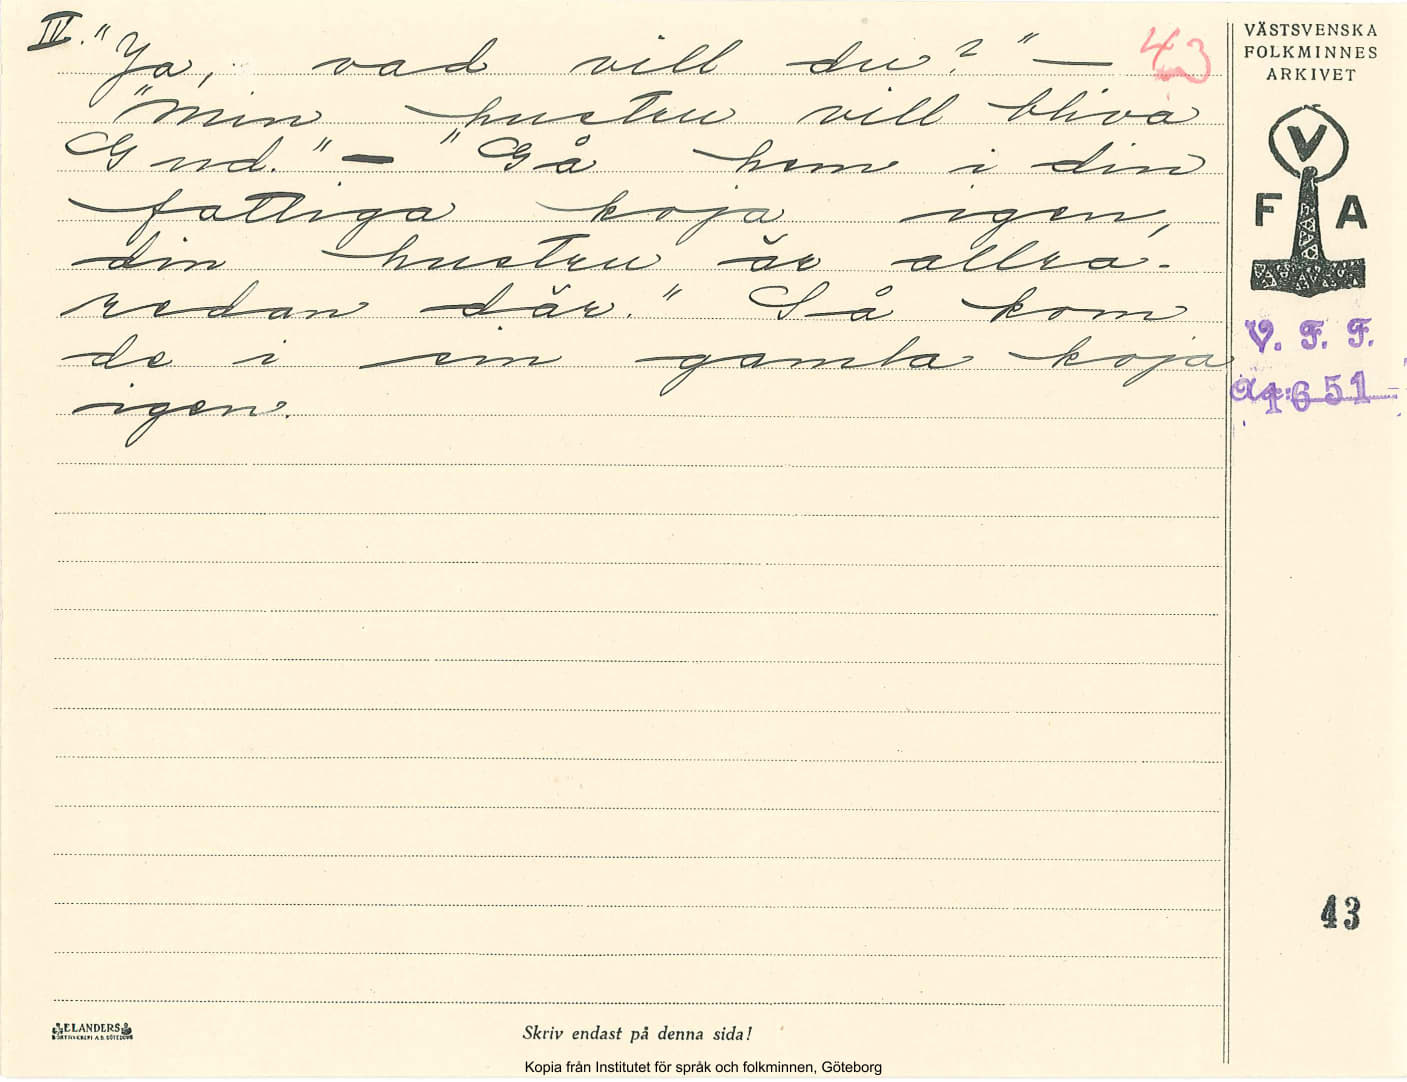 IV. "Ja, vad vill du?" — 43
"Min hustru vill bliva
Gud." — "Gå hem i din
fattiga koja igen,
din hustru är allra-
redan där." Så kom
de i sin gamla koja
igen.
VÄSTSVENSKA
FOLKMINNES
ARKIVET
V
F A
V. F. F.
1651
43
ELANDERS
Skriv endast på denna sida!
Kopia från Institutet för språk och folkminnen, Göteborg